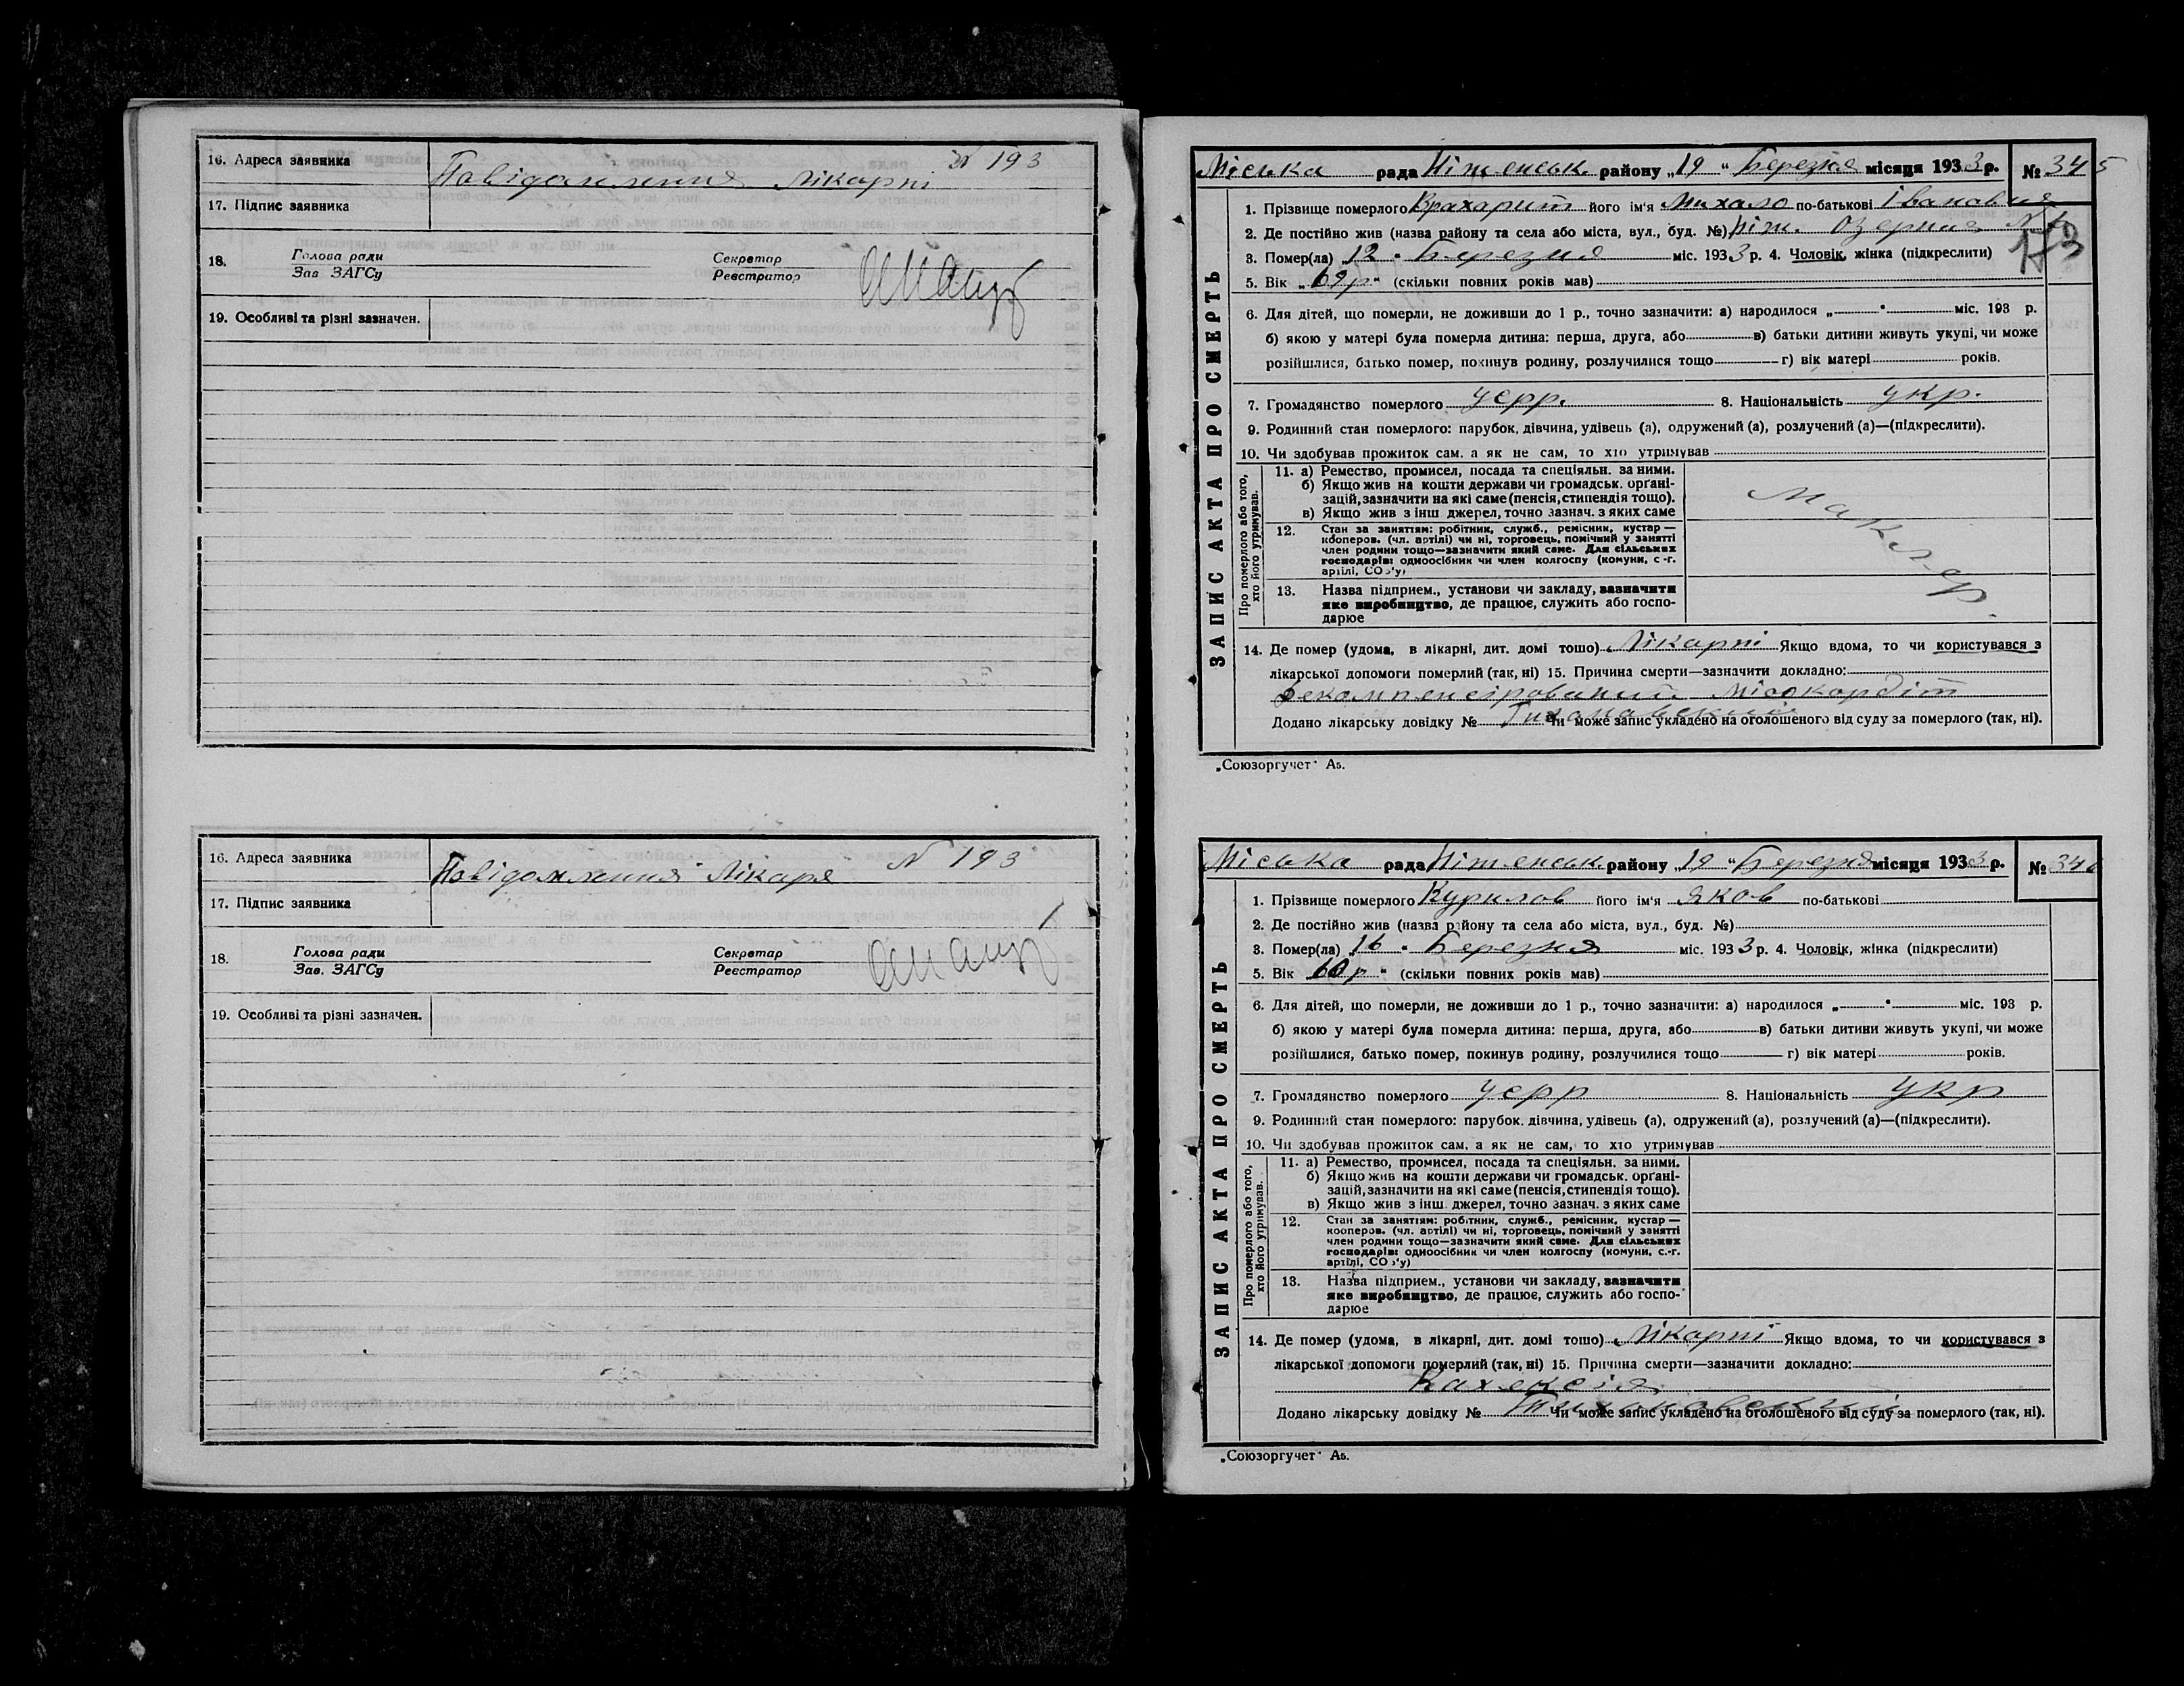 16. Адреса заявника
Повідомлення лікарні № 193
17. Підпис заявника
18. Голова ради
Зав ЗАГСу
Секретар
Реєстратор
19. Особливі та різні зазначен.
16. Адреса заявника
Повідомлення Лікаря № 193
17. Підпис заявника
18. Голова ради
Зав. ЗАГСу
Секретар
Реєстратор
19. Особливі та різні зазначен.
Міська рада Ніженськ. району „19 “ Березня місяця 1933 р. № 345
ЗАПИС АКТА ПРО СМЕРТЬ
1. Прізвище померлого його ім'я Михало по-батькові Іванович
2. Де постійно жив (назва району та села або міста, вул., буд. №) Ніж. Озерна
173
3. Помер(ла) „12 “ Березня міс. 1933 р. 4. Чоловік, жінка (підкреслити)
5. Вік „ 69 р “ (скільки повних років мав)
6. Для дітей, що померли, не доживши до 1 р., точно зазначити: а) народилося „ “ міс. 193 р.
б) якою у матері була померла дитина: перша, друга, або в) батьки дитини живуть укупі, чи може
розійшлися, батько помер, покинув родину, розлучилися тощо г) вік матері років.
7. Громадянство померлого Усрр. 8. Національність укр.
9. Родинний стан померлого: парубок, дівчина, удівець (а), одружений (а), розлучений (а)—(підкреслити).
10. Чи здобував прожиток сам, а як не сам, то хто утримував
Про померлого або того,
хто його утримував.
11. а) Ремество, промисел, посада та спеціяльн. за ними.
б) Якщо жив на кошти держави чи громадськ. орґані-
зацій, зазначити на які саме (пенсія, стипендія тощо).
в) Якщо жив з інш джерел, точно зазнач. з яких саме
Маклер.
12. Стан за заняттям: робітник, служб., ремісник, кустар —
кооперов. (чл. артілі) чи ні, торговець, помічний у занятті
член родини тощо—зазначити який саме. Для сільських
господарів: одноосібник чи член колгоспу (комуни, с.-г.
артілі, СОЗ'у)
13. Назва підприєм., установи чи закладу, зазначити
яке виробництво, де працює, служить або госпо-
дарює
14. Де помер (удома, в лікарні, дит. домі тощо) Лікарні Якщо вдома, то чи користувався з
лікарської допомоги померлий (так, ні) 15. Причина смерти—зазначити докладно:
Декомпенсірований міокардіт
Додано лікарську довідку № Тихановский Чи може запис укладено на оголошеного від суду за померлого (так, ні).
„Союзоргучет“ А5.
Міська рада Ніженськ. району „19 “ Березня місяця 1933 р. № 346
ЗАПИС АКТА ПРО СМЕРТЬ
1. Прізвище померлого Курилов його ім'я Яков по-батькові
2. Де постійно жив (назва району та села або міста, вул., буд. №)
3. Помер(ла) „16 “ Березня міс. 1933 р. 4. Чоловік, жінка (підкреслити)
5. Вік 60 р “ (скільки повних років мав)
6. Для дітей, що померли, не доживши до 1 р., точно зазначити: а) народилося „ “ міс. 193 р.
б) якою у матері була померла дитина: перша, друга, або в) батьки дитини живуть укупі, чи може
розійшлися, батько помер, покинув родину, розлучилися тощо г) вік матері років.
7. Громадянство померлого Усрр 8. Національність Укр
9. Родинний стан померлого: парубок, дівчина, удівець (а), одружений (а), розлучений (а)—(підкреслити).
10. Чи здобував прожиток сам, а як не сам, то хто утримував
Про померлого або того,
хто його утримував.
11. а) Ремество, промисел, посада та спеціяльн. за ними.
б) Якщо жив на кошти держави чи громадськ. орґані-
зацій, зазначити на які саме (пенсія, стипендія тощо).
в) Якщо жив з інш. джерел, точно зазнач. з яких саме
12. Стан за заняттям: робітник, служб., ремісник, кустар —
кооперов. (чл. артілі) чи ні, торговець, помічний у занятті
член родини тощо—зазначити який саме. Для сільських
господарів: одноосібник чи член колгоспу (комуни, с.-г.
артілі, СОЗ'у)
13. Назва підприєм., установи чи закладу, зазначити
яке виробництво, де працює, служить або госпо-
дарює
14. Де помер (удома, в лікарні, дит. домі тощо) Лікарні Якщо вдома, то чи користувався з
лікарської допомоги померлий (так, ні) 15. Причина смерти—зазначити докладно:
Кахексія
Додано лікарську довідку № Тихановский Чи може запис укладено на оголошеного від суду за померлого (так, ні).
„Союзоргучет“ А5.